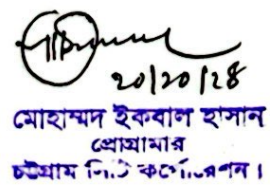 ২০/১০/২৪
মোহাম্মদ ইকবাল হাসান
প্রোগ্রামার
চট্টগ্রাম সিটি কর্পোরেশন।